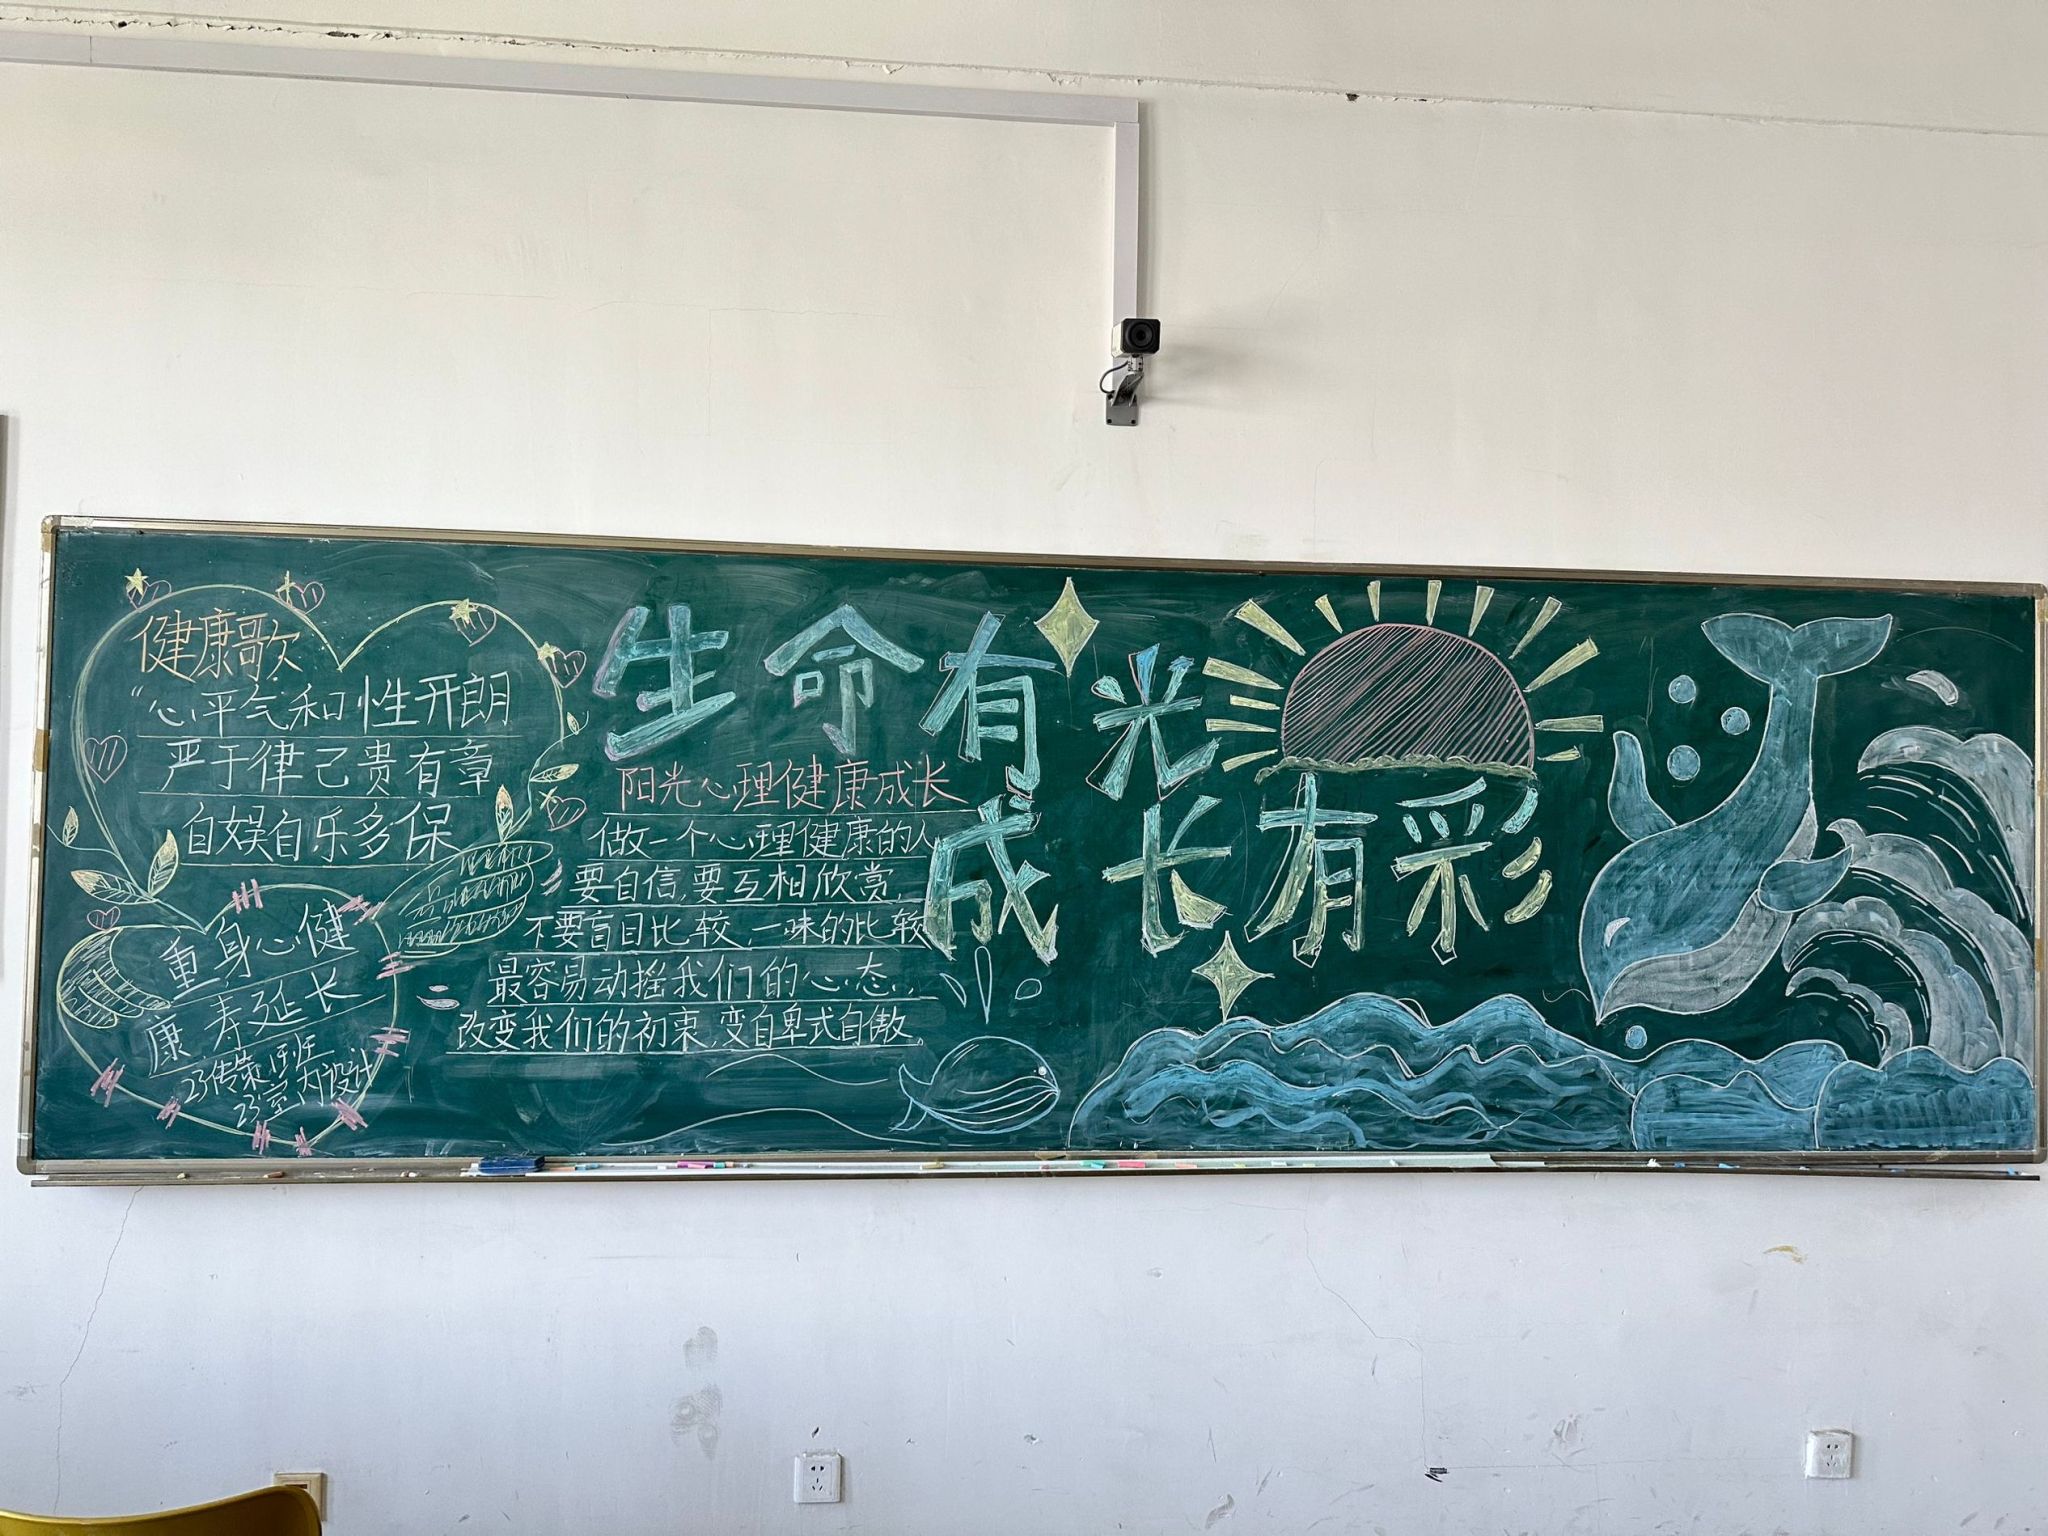 健康歌
“心平气和性开朗
严于律己贵有章
自娱自乐多保
重,身心健
康,寿延长
23传策班
23室内设计
生命有光
成长有彩
阳光心理健康成长
做一个心理健康的人
要自信,要互相欣赏,
不要盲目比较,一味的比较
最容易动摇我们的心态,
改变我们的初衷,变自卑或自傲。